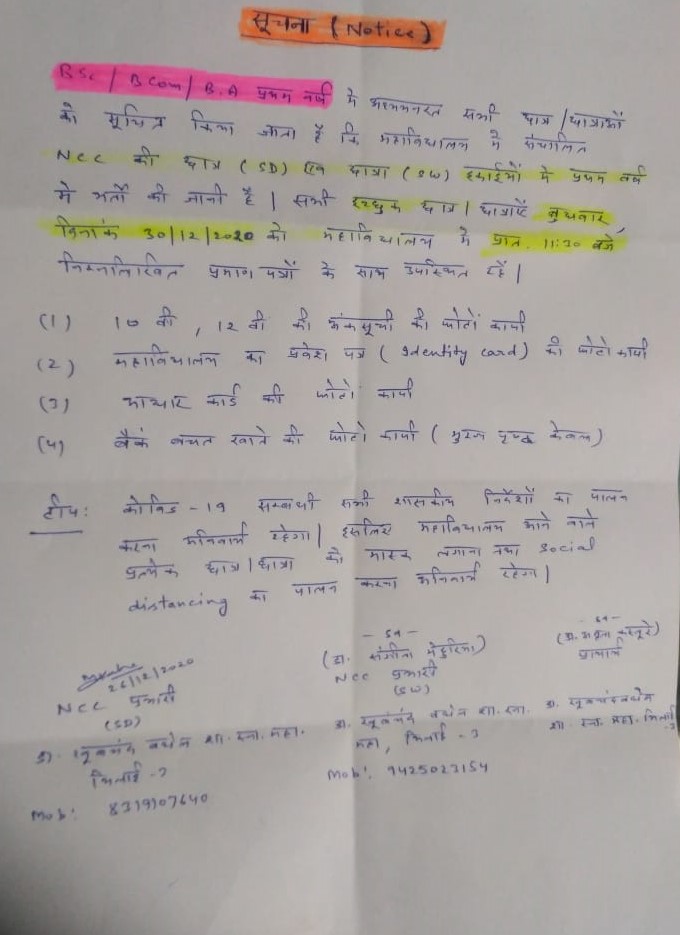 सूचना (Notice)
BSc / BCom / B.A प्रथम वर्ष में अध्ययनरत सभी छात्र / छात्राओं
को सूचित किया जाता है कि महाविद्यालय में संचालित
NCC की छात्र (SD) एवं छात्रा (SW) इकाईयों में प्रथम वर्ष
में भर्ती की जानी है | सभी इच्छुक छात्र | छात्राएँ बुधवार,
दिनांक 30/12/2020 को महाविद्यालय में प्रात. 11:30 बजे,
निम्नलिखित प्रमाण पत्रों के साथ उपस्थित रहें |
(1) 10 वी , 12 वी की अंकसूची की फोटो कापी
(2) महाविद्यालय का प्रवेश पत्र ( Identity card) की फोटो कापी
(3) आधार कार्ड की फोटो कापी
(4) बैंक बचत खाते की फोटो कापी ( मुख्य पृष्ठ केवल)
टीप: कोविड - 19 सम्बधी सभी शासकीय निर्देशों का पालन
करना अनिवार्य रहेगा | इसलिए महाविद्यालय आने वाले
प्रत्येक छात्र | छात्रा को मास्क लगाना तथा social
distancing का पालन करना अनिवार्य रहेगा |
26/12/2020
NCC प्रभारी
(SD)
डॉ. खूबचंद बघेल शा. स्ना. महा.
भिलाई - 3
Mob: 8319107640
- sd -
(डा. संगीता मेहुरिया)
NCC प्रभारी
(SW)
डा. खूबचंद बघेल शा. स्ना.
महा, भिलाई - 3
Mob: 9425023154
- sd -
प्राचार्य
डा. खूबचंद बघेल
शा. स्ना. महा. भिलाई - 3